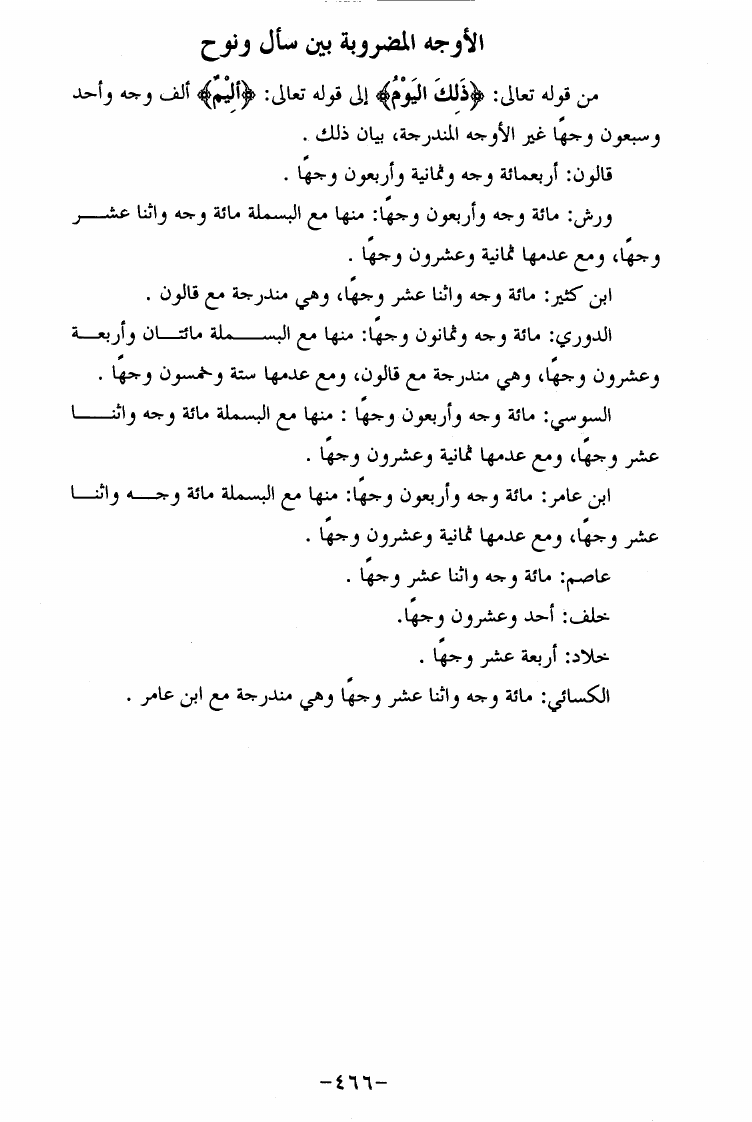 الأوجه المضروبة بين سأل ونوح
من قوله تعالى: ﴿ذَلِكَ اليَوْمُ﴾ إلى قوله تعالى: ﴿أَلِيْمٌ﴾ ألف وجه وأحد
وسبعون وجهًا غير الأوجه المندرجة، بيان ذلك .
قالون: أربعمائة وجه وثمانية وأربعون وجهًا .
ورش: مائة وجه وأربعون وجهًا: منها مع البسملة مائة وجه واثنا عشـــر
وجهًا، ومع عدمها ثمانية وعشرون وجهًا .
ابن كثير: مائة وجه واثنا عشر وجهًا، وهي مندرجة مع قالون .
الدوري: مائة وجه وثمانون وجهًا: منها مع البســـملة مائتـــان وأربعـــة
وعشرون وجهًا، وهي مندرجة مع قالون، ومع عدمها ستة وخمسون وجهًا .
السوسي: مائة وجه وأربعون وجهًا : منها مع البسملة مائة وجه واثنـــا
عشر وجهًا، ومع عدمها ثمانية وعشرون وجهًا .
ابن عامر: مائة وجه وأربعون وجهًا: منها مع البسملة مائة وجـــه واثنـــا
عشر وجهًا، ومع عدمها ثمانية وعشرون وجهًا .
عاصم: مائة وجه واثنا عشر وجهًا .
خلف: أحد وعشرون وجهًا.
خلاد: أربعة عشر وجهًا .
الكسائي: مائة وجه واثنا عشر وجهًا وهي مندرجة مع ابن عامر .
-٤٦٦-